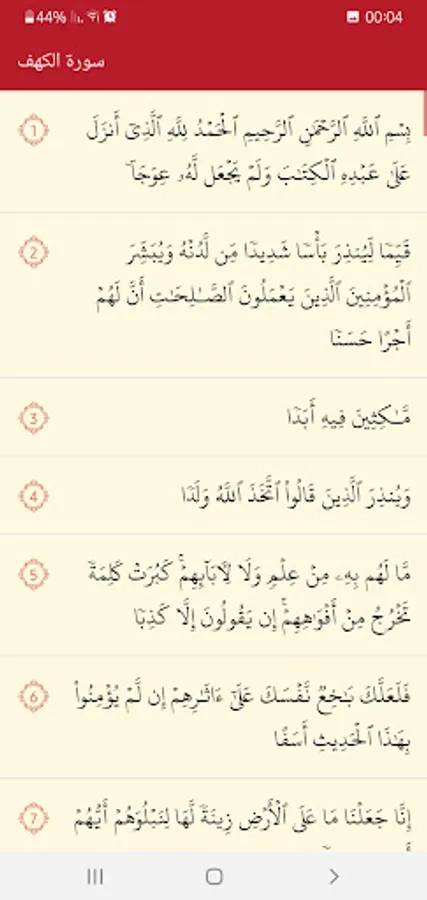 44% 00:04
سورة الكهف
1 بِسْمِ ٱللَّهِ ٱلرَّحْمَٰنِ ٱلرَّحِيمِ ٱلْحَمْدُ لِلَّهِ ٱلَّذِىٓ أَنزَلَ
عَلَىٰ عَبْدِهِ ٱلْكِتَٰبَ وَلَمْ يَجْعَل لَّهُۥ عِوَجَاۜ
2 قَيِّمًا لِّيُنذِرَ بَأْسًا شَدِيدًا مِّن لَّدُنْهُ وَيُبَشِّرَ
ٱلْمُؤْمِنِينَ ٱلَّذِينَ يَعْمَلُونَ ٱلصَّٰلِحَٰتِ أَنَّ لَهُمْ
أَجْرًا حَسَنًا
3 مَّٰكِثِينَ فِيهِ أَبَدًا
4 وَيُنذِرَ ٱلَّذِينَ قَالُوا۟ ٱتَّخَذَ ٱللَّهُ وَلَدًا
5 مَّا لَهُم بِهِۦ مِنْ عِلْمٍ وَلَا لِءَابَآئِهِمْ ۚ كَبُرَتْ كَلِمَةً
تَخْرُجُ مِنْ أَفْوَٰهِهِمْ ۚ إِن يَقُولُونَ إِلَّا كَذِبًا
6 فَلَعَلَّكَ بَٰخِعٌ نَّفْسَكَ عَلَىٰٓ ءَاثَٰرِهِمْ إِن لَّمْ يُؤْمِنُوا۟
بِهَٰذَا ٱلْحَدِيثِ أَسَفًا
7 إِنَّا جَعَلْنَا مَا عَلَى ٱلْأَرْضِ زِينَةً لَّهَا لِنَبْلُوَهُمْ أَيُّهُمْ